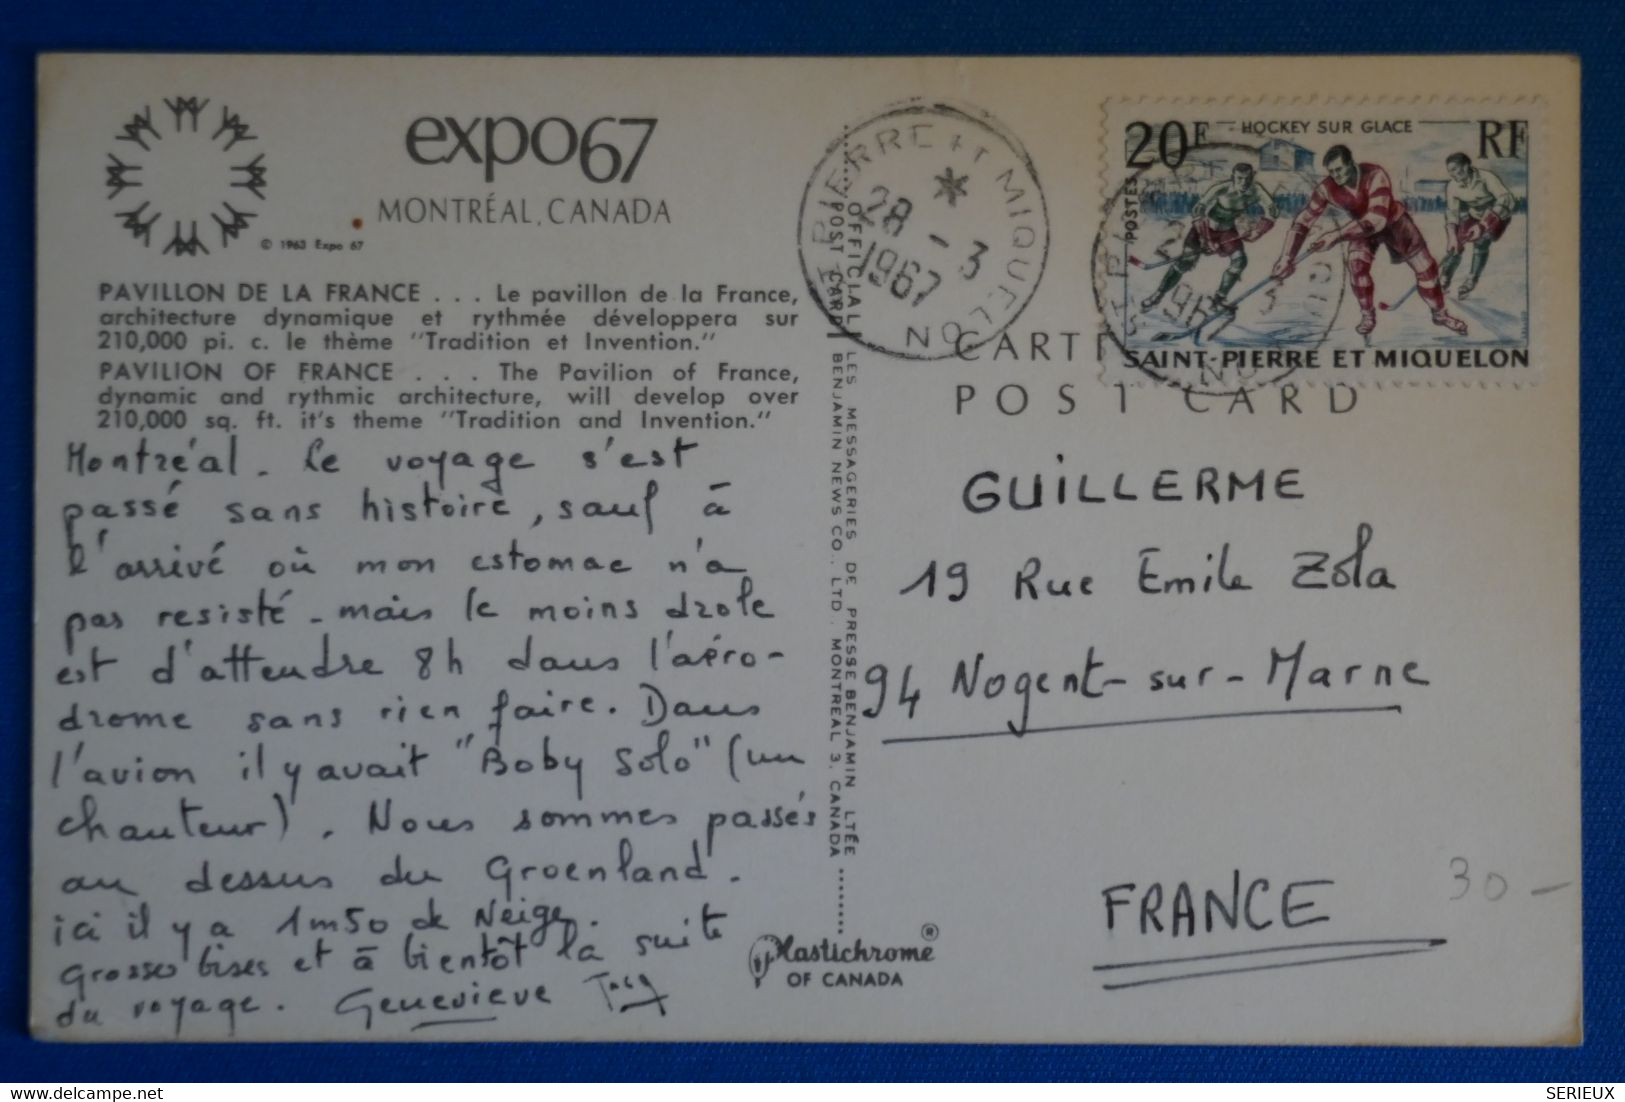 expo67
MONTRÉAL, CANADA
© 1963 Expo 67
PAVILLON DE LA FRANCE . . . Le pavillon de la France,
architecture dynamique et rythmée développera sur
210,000 pi. c. le thème "Tradition et Invention."
PAVILION OF FRANCE . . . The Pavilion of France,
dynamic and rythmic architecture, will develop over
210,000 sq. ft. it's theme "Tradition and Invention."
Montréal. Le voyage s'est
passé sans histoire, sauf à
l'arrivé où mon estomac n'a
pas resisté - mais le moins drole
est d'attendre 8h dans l'aéro-
drome sans rien faire. Dans
l'avion il y avait "Boby Solo" (un
chanteur). Nous sommes passés
au dessus du Groenland.
ici il y a 1m50 de Neige.
grosses bises et à bientôt la suite
du voyage. Genevieve
Plastichrome®
OF CANADA
OFFICIAL POST CARD
LES MESSAGERIES DE PRESSE BENJAMIN LTÉE
BENJAMIN NEWS CO., LTD. MONTREAL 3, CANADA
ST PIERRE ET MIQUELON
28-3
1967
20F HOCKEY SUR GLACE RF
POSTES
SAINT-PIERRE ET MIQUELON
CARTE
POST CARD
GUILLERME
19 Rue Emile Zola
94 Nogent-sur-Marne
FRANCE
30-
SERIEUX